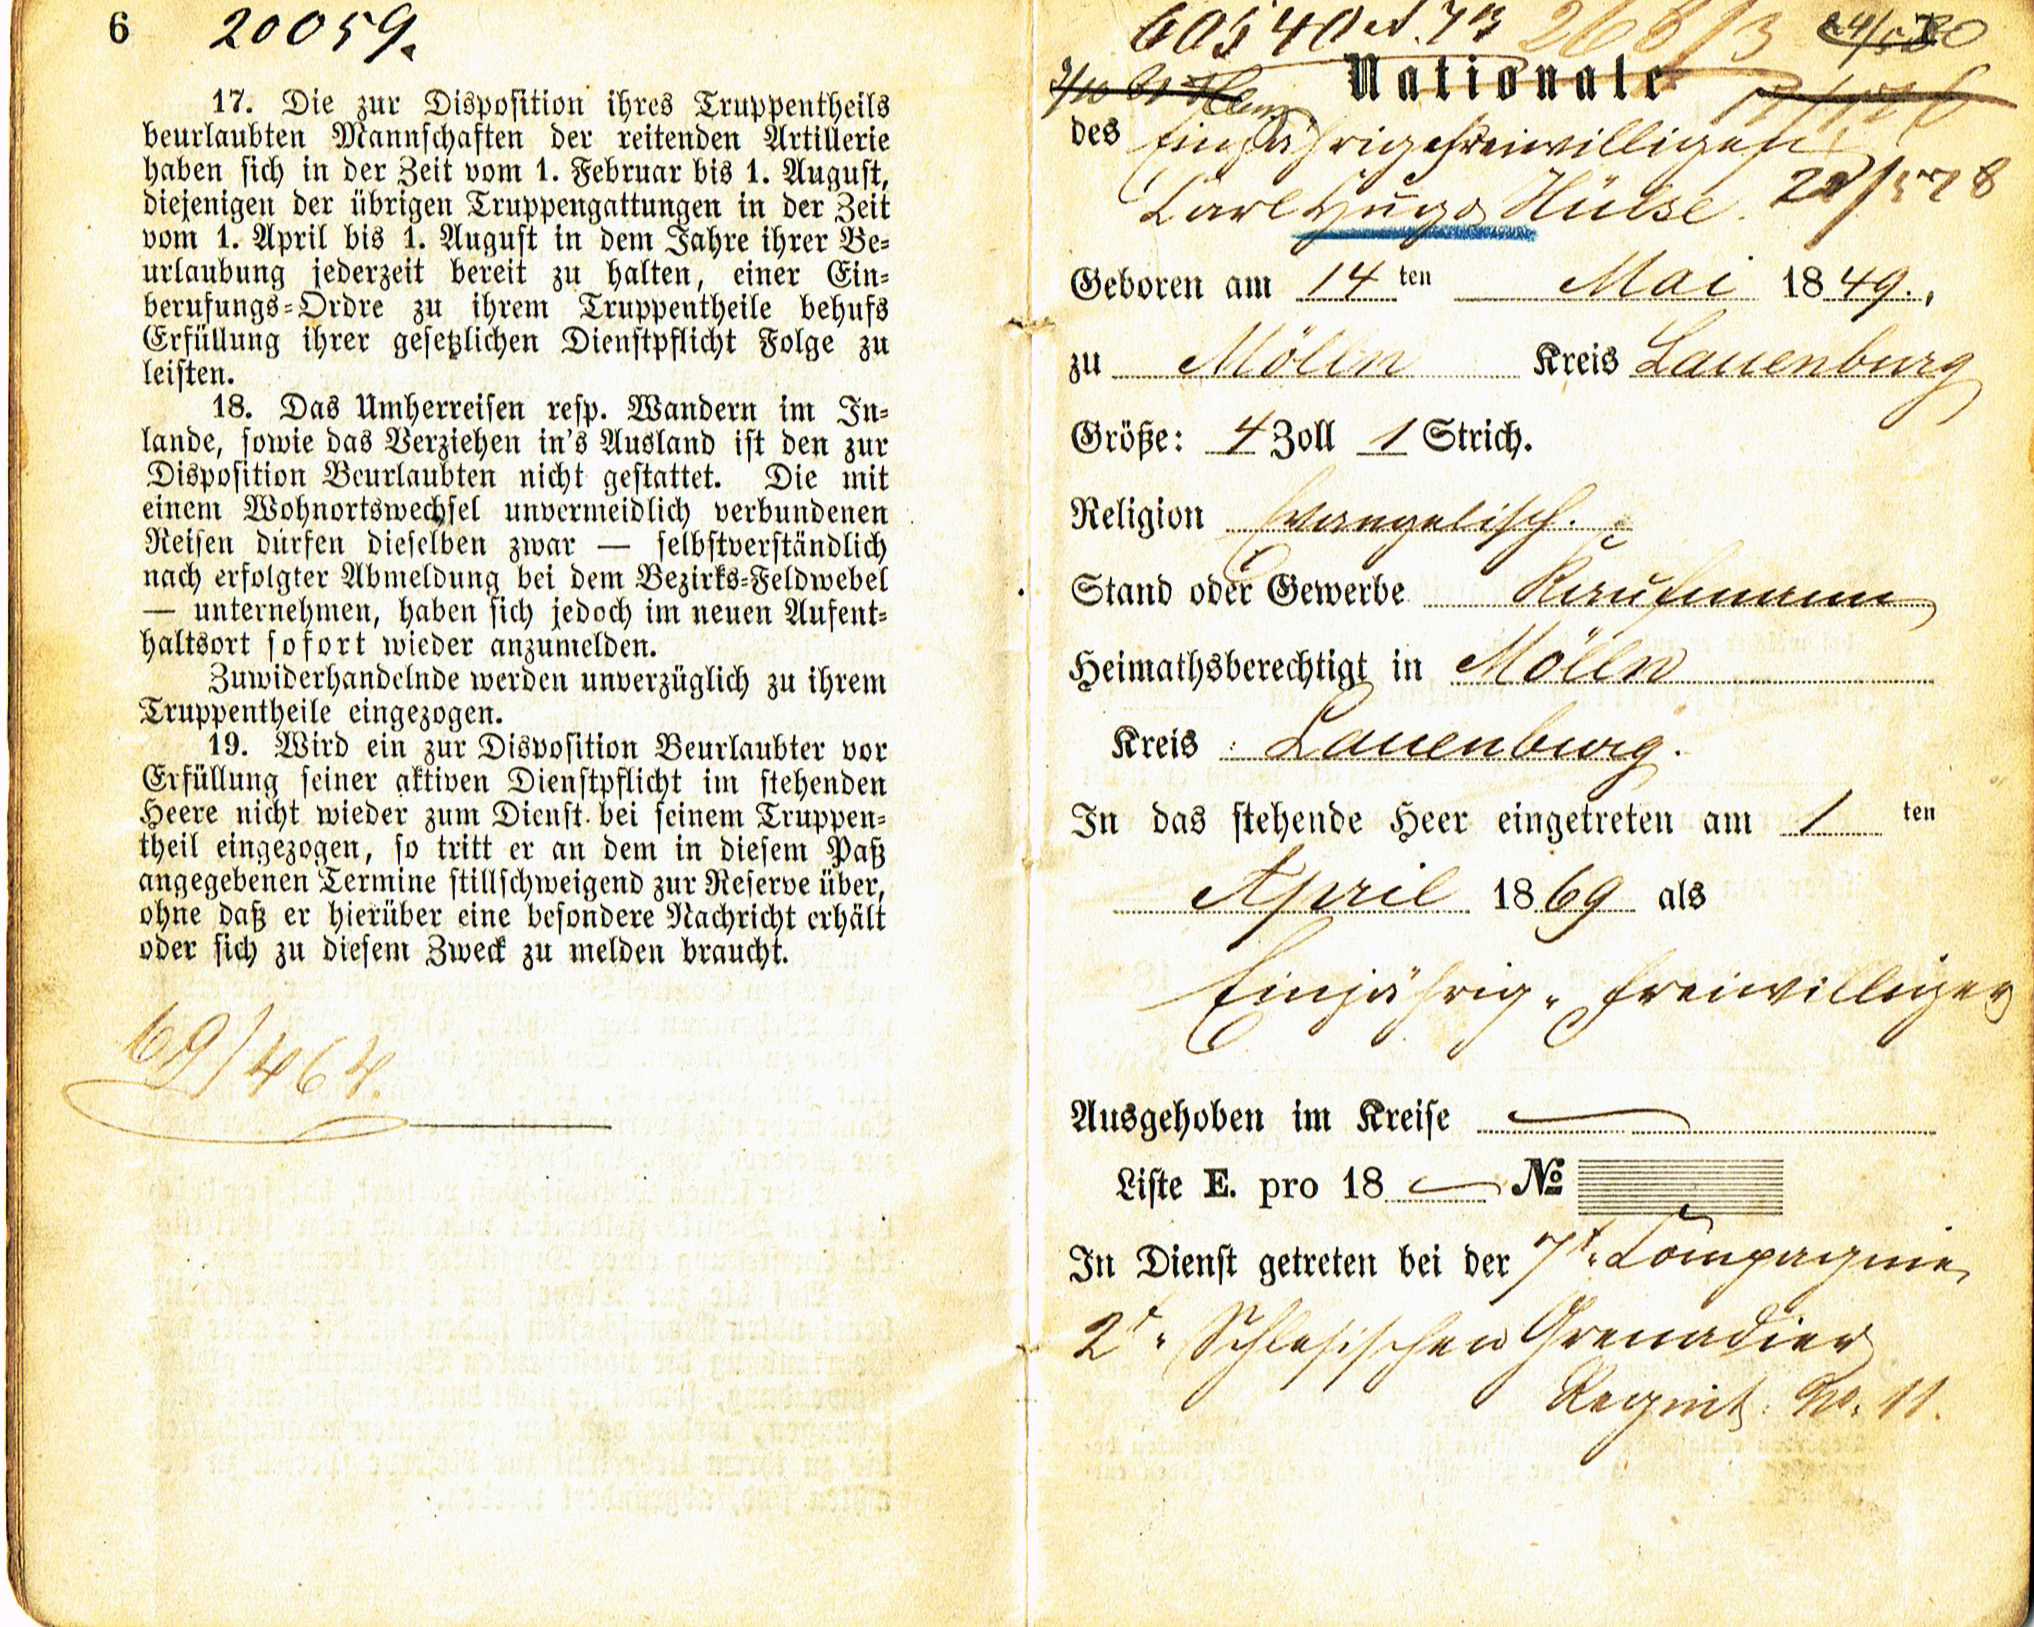 6 20059.
17. Die zur Disposition ihres Truppentheils
beurlaubten Mannschaften der reitenden Artillerie
haben sich in der Zeit vom 1. Februar bis 1. August,
diejenigen der übrigen Truppengattungen in der Zeit
vom 1. April bis 1. August in dem Jahre ihrer Be-
urlaubung jederzeit bereit zu halten, einer Ein-
berufungs-Ordre zu ihrem Truppentheile behufs
Erfüllung ihrer gesetzlichen Dienstpflicht Folge zu
leisten.
18. Das Umherreisen resp. Wandern im In-
lande, sowie das Verziehen in's Ausland ist den zur
Disposition Beurlaubten nicht gestattet. Die mit
einem Wohnortswechsel unvermeidlich verbundenen
Reisen dürfen dieselben zwar — selbstverständlich
nach erfolgter Abmeldung bei dem Bezirks-Feldwebel
— unternehmen, haben sich jedoch im neuen Aufent-
haltsort sofort wieder anzumelden.
Zuwiderhandelnde werden unverzüglich zu ihrem
Truppentheile eingezogen.
19. Wird ein zur Disposition Beurlaubter vor
Erfüllung seiner aktiven Dienstpflicht im stehenden
Heere nicht wieder zum Dienst bei seinem Truppen-
theil eingezogen, so tritt er an dem in diesem Paß
angegebenen Termine stillschweigend zur Reserve über,
ohne daß er hierüber eine besondere Nachricht erhält
oder sich zu diesem Zweck zu melden braucht.
69/464.
Nationale
des Einjährig Freiwilligen
Carl Hugo Hülse. 578
Geboren am 14 ten Mai 1849.,
zu Mölln Kreis Lauenburg
Größe: 4 Zoll 1 Strich.
Religion Evangelisch.
Stand oder Gewerbe Kaufmann
Heimathsberechtigt in Mölln
Kreis Lauenburg.
In das stehende Heer eingetreten am 1 ten
April 1869 als
Einjährig-Freiwilliger
Ausgehoben im Kreise
Liste E. pro 18 No
In Dienst getreten bei der 7t. Compagnie
2t. Schlesischen Grenadier
Regmt. No. 11.